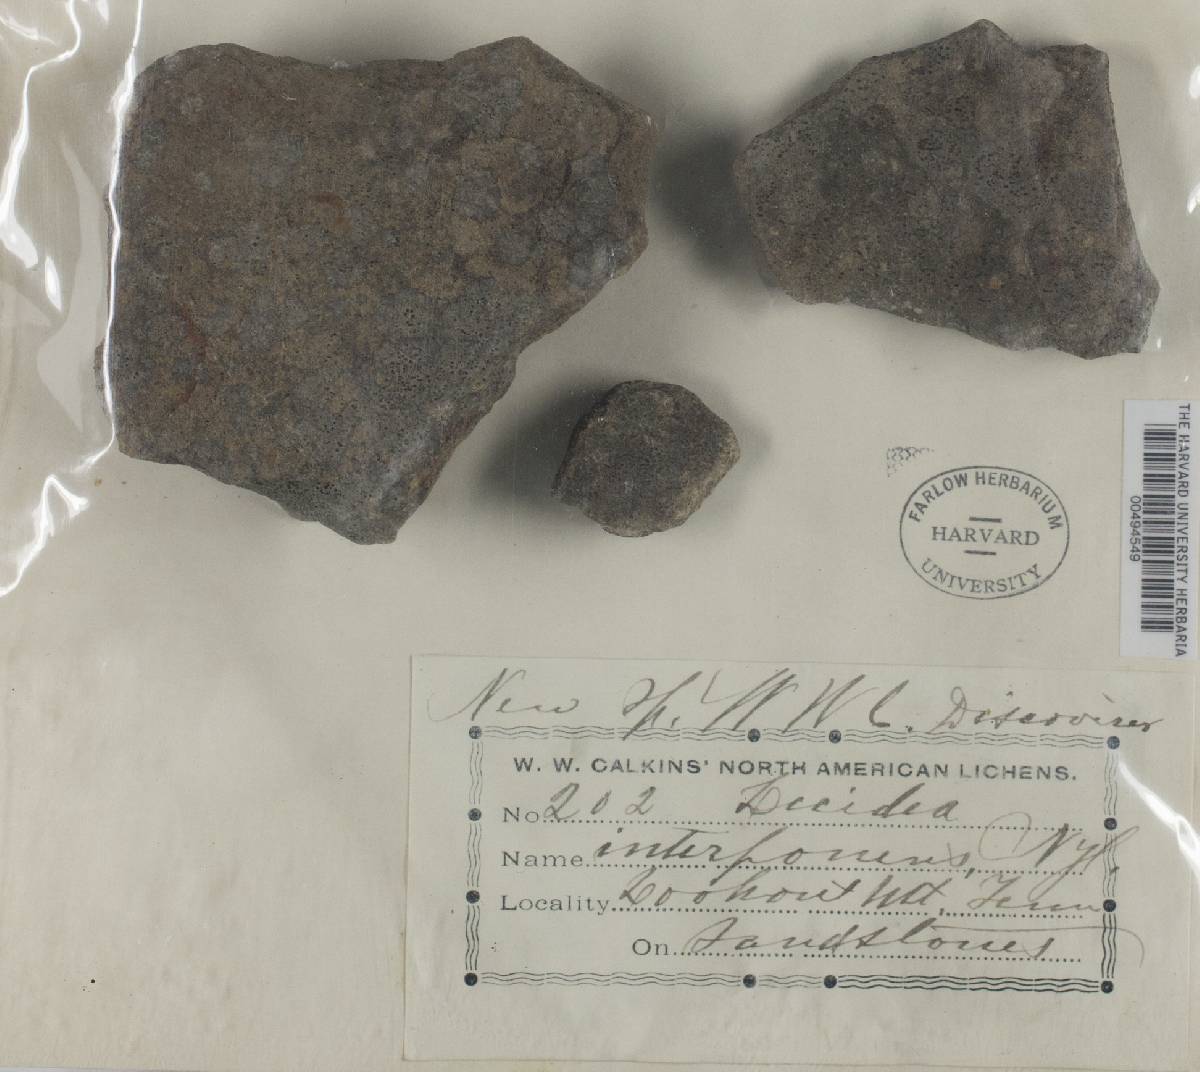 THE HARVARD UNIVERSITY HERBARIA
00494549
FARLOW HERBARIUM
HARVARD
UNIVERSITY
New Sp. W W C. Discoverer
W. W. CALKINS' NORTH AMERICAN LICHENS.
No. 202 Lecidea
Name interponens, Nyl.
Locality Lookout Mt, Tenn
On sandstones